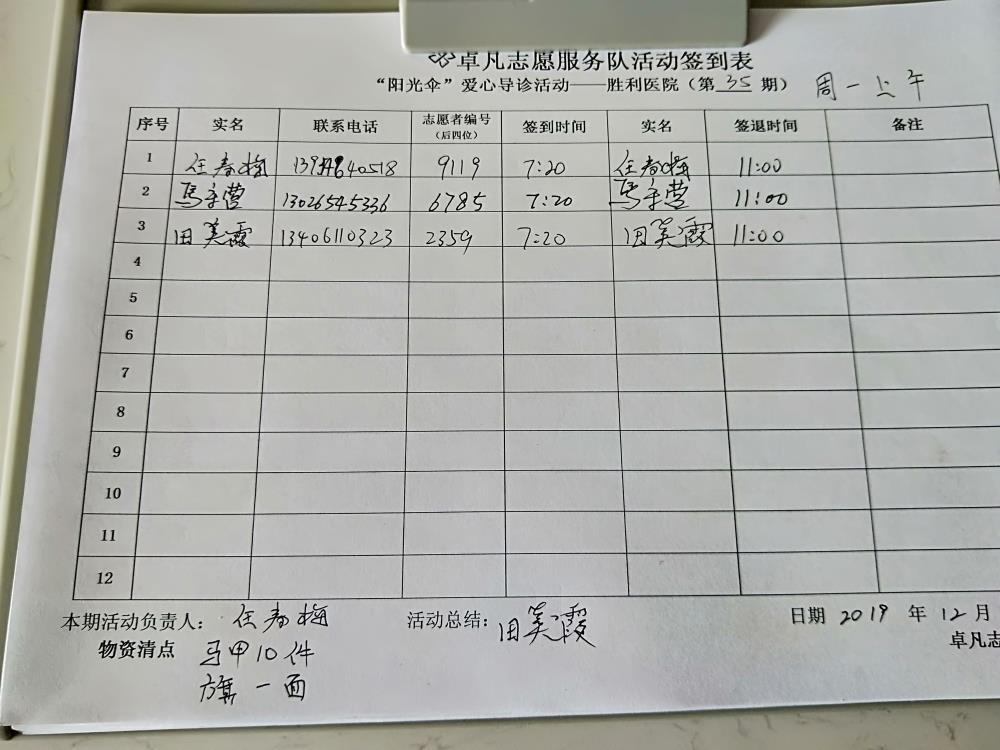 卓凡志愿服务队活动签到表
“阳光伞”爱心导诊活动——胜利医院（第 35 期） 周一上午
序号 实名 联系电话 志愿者编号（后四位） 签到时间 实名 签退时间 备注
1 任春梅 9119 7:20 任春梅 11:00
2 13026545336 6785 7:20 11:00
3 田美霞 13406110323 2359 7:20 田美霞 11:00
4
5
6
7
8
9
10
11
12
本期活动负责人： 任春梅 活动总结： 田美霞 日期 2019 年 12 月
物资清点 马甲10件 卓凡志
旗一面